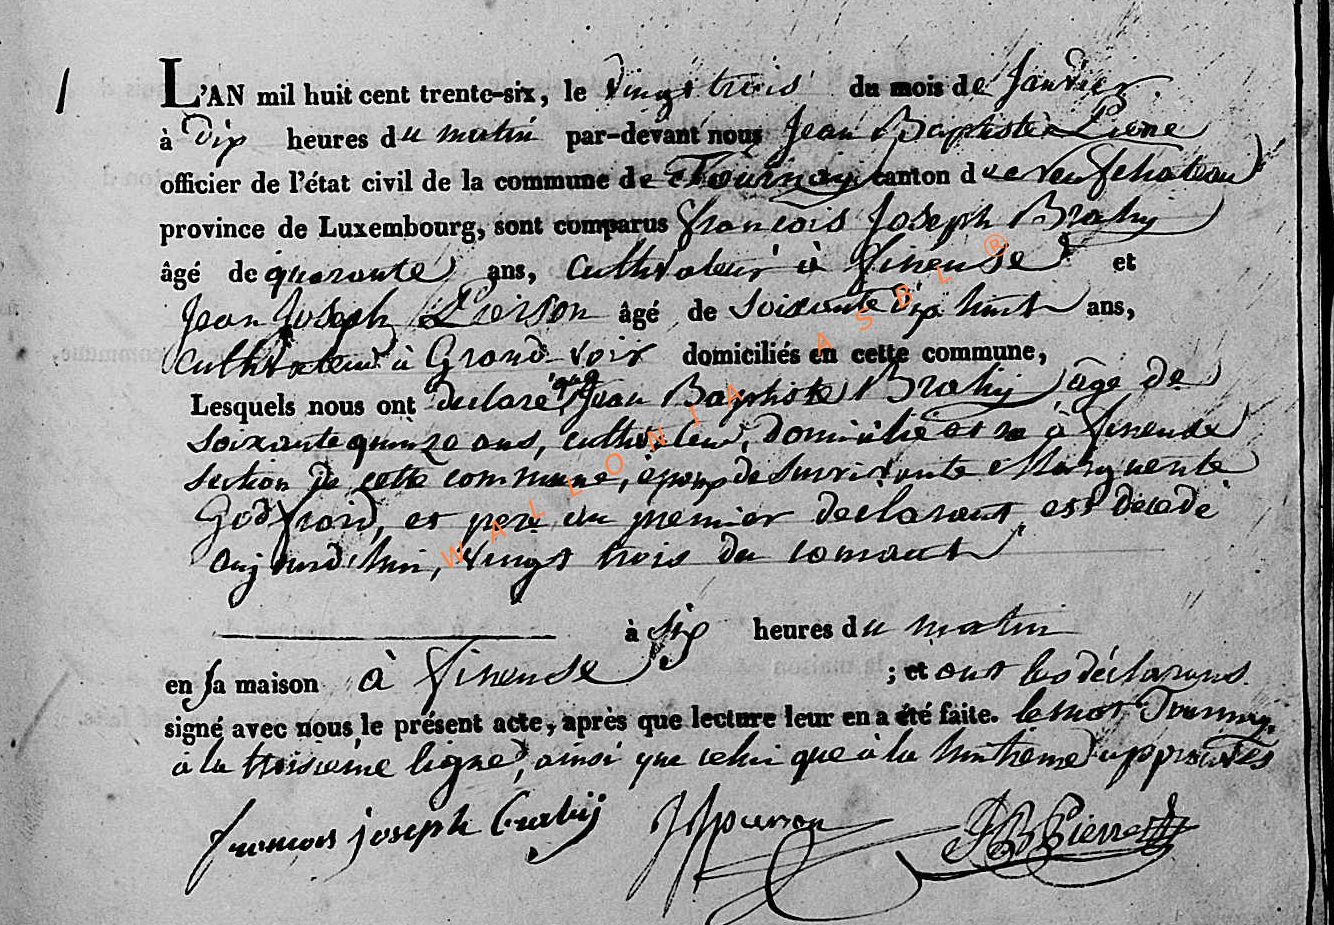 1
L'AN mil huit cent trente-six, le vingt trois du mois de Janvier
à dix heures du matin par-devant nous Jean Baptiste Pierre
officier de l'état civil de la commune de Tournay canton de neufchateau
province de Luxembourg, sont comparus françois Joseph Brahy
âgé de quarante ans, cultivateur à fineuse et
Jean Joseph Pierson âgé de soixante dix huit ans,
cultivateur à Grand-voir domiciliés en cette commune,
Lesquels nous ont declaré que Jean Baptiste Brahy âge de
soixante quinze ans, cultivateur, domicilié à fineuse
section de cette commune, epoux de survivante Marguerite
Godfroid, et pere du premier declarant est décedé
aujourd'hui, vingt trois du courant
à six heures du matin
en sa maison à fineuse ; et ont les déclarans
signé avec nous le présent acte, après que lecture leur en a été faite. le mot Tournay
à la troisieme ligne, ainsi que celui que à la huitieme approuvés
françois joseph Brahy JJ pierson JB Pierre
WALLONIA ASBL ®